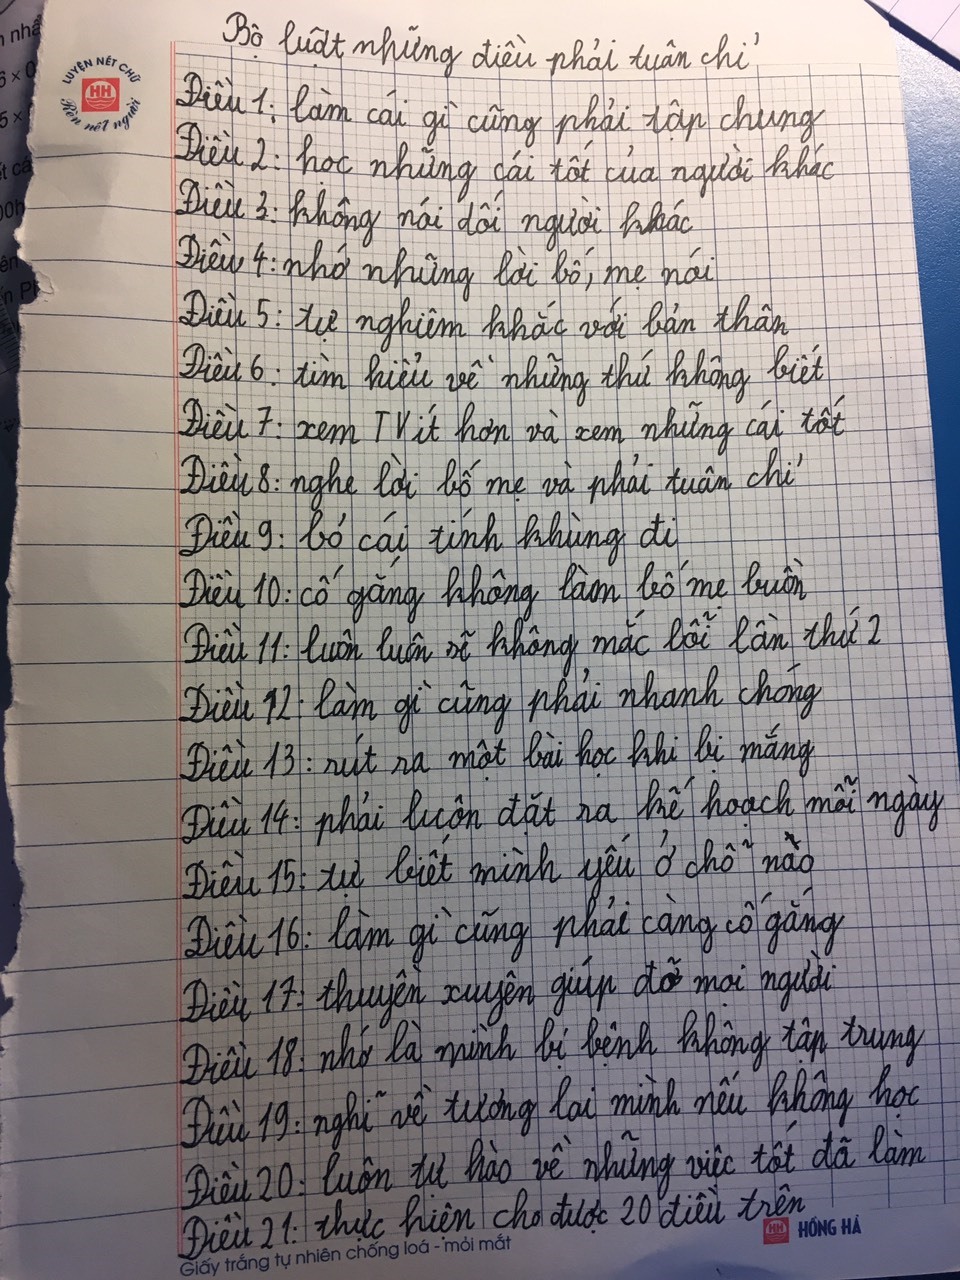 Bộ luật những điều phải tuân chỉ
LUYỆN NÉT CHỮ
Rèn nết người
HH
Điều 1: làm cái gì cũng phải tập chung
Điều 2: học những cái tốt của người khác
Điều 3: không nói dối người khác
Điều 4: nhớ những lời bố, mẹ nói
Điều 5: tự nghiêm khắc với bản thân
Điều 6: tìm hiểu về những thứ không biết
Điều 7: xem TV ít hơn và xem những cái tốt
Điều 8: nghe lời bố mẹ và phải tuân chỉ
Điều 9: bỏ cái tính khùng đi
Điều 10: cố gắng không làm bố mẹ buồn
Điều 11: luôn luôn sẽ không mắc lỗi lần thứ 2
Điều 12: làm gì cũng phải nhanh chóng
Điều 13: rút ra một bài học khi bị mắng
Điều 14: phải luôn đặt ra kế hoạch mỗi ngày
Điều 15: tự biết mình yếu ở chỗ nào
Điều 16: làm gì cũng phải càng cố gắng
Điều 17: thuyền xuyên giúp đỡ mọi người
Điều 18: nhớ là mình bị bệnh không tập trung
Điều 19: nghĩ về tương lai mình nếu không học
Điều 20: luôn tự hào về những việc tốt đã làm
Điều 21: thực hiện cho được 20 điều trên
HH HỒNG HÀ
Giấy trắng tự nhiên chống loá - mỏi mắt